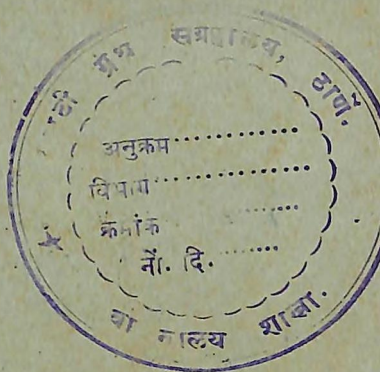 ठी ग्रंथ संग्रहालय, ठाणें.
अनुक्रम
विभाग
क्रमांक
नों. दि.
शाखा.